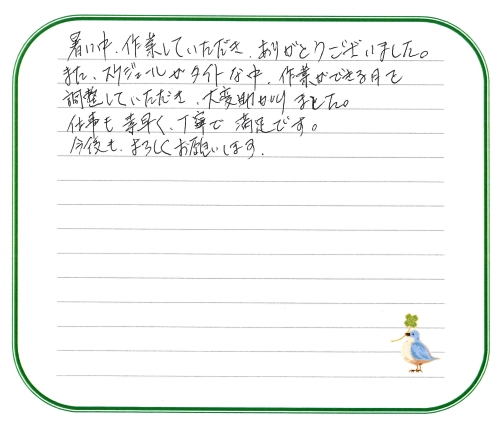 暑い中、作業していただき、ありがとうございました。
また、スケジュールがタイトな中、作業ができる日を
調整していただき、大変助かりました。
仕事も素早く、丁寧で満足です。
今後も、よろしくお願いします。